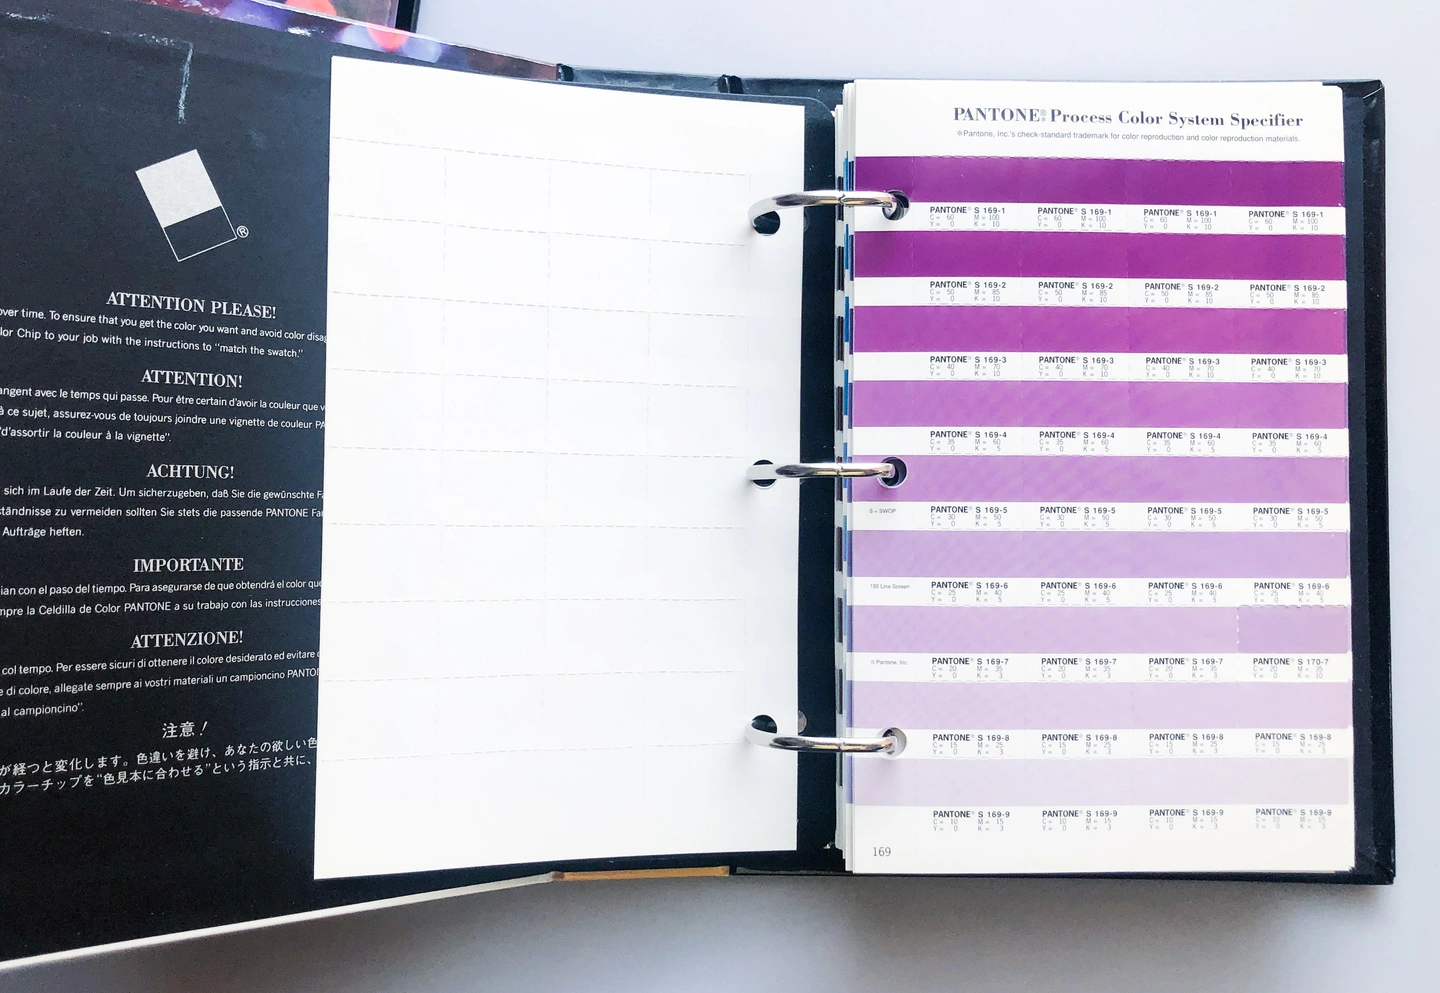 ®
ATTENTION PLEASE!
over time. To ensure that you get the color you want and avoid color
Chip to your job with the instructions to "match the swatch."
ATTENTION!
avec le temps qui passe. Pour être certain d'avoir la couleur que
à ce sujet, assurez-vous de toujours joindre une vignette de couleur
"d'assortir la couleur à la vignette".
ACHTUNG!
sich im Laufe der Zeit. Um sicherzugeben, daß Sie die gewünschte
zu vermeiden sollten Sie stets die passende PANTONE
Aufträge heften.
IMPORTANTE
con el paso del tiempo. Para asegurarse de que obtendrá el color
la Celdilla de Color PANTONE a su trabajo con las instrucciones
ATTENZIONE!
col tempo. Per essere sicuri di ottenere il colore desiderato ed evitare
di colore, allegate sempre ai vostri materiali un campioncino
al campioncino".
注意！
が経つと変化します。色違いを避け、あなたの欲しい色
カラーチップを"色見本に合わせる"という指示と共に、
PANTONE® Process Color System Specifier
®Pantone, Inc.'s check-standard trademark for color reproduction and color reproduction materials.
PANTONE® S 169-1 PANTONE® S 169-1 PANTONE® S 169-1 PANTONE® S 169-1
C = 60 M = 100 C = 60 M = 100 C = 60 M = 100 C = 60 M = 100
Y = 0 K = 10 Y = 0 K = 10 Y = 0 K = 10 Y = 0 K = 10
PANTONE® S 169-2 PANTONE® S 169-2 PANTONE® S 169-2 PANTONE® S 169-2
C = 50 M = 85 C = 50 M = 85 C = 50 M = 85 C = 50 M = 85
Y = 0 K = 10 Y = 0 K = 10 Y = 0 K = 10 Y = 0 K = 10
PANTONE® S 169-3 PANTONE® S 169-3 PANTONE® S 169-3 PANTONE® S 169-3
C = 40 M = 70 C = 40 M = 70 C = 40 M = 70 C = 40 M = 70
Y = 0 K = 10 Y = 0 K = 10 Y = 0 K = 10 Y = 0 K = 10
PANTONE® S 169-4 PANTONE® S 169-4 PANTONE® S 169-4 PANTONE® S 169-4
C = 35 M = 60 C = 35 M = 60 C = 35 M = 60 C = 35 M = 60
Y = 0 K = 5 Y = 0 K = 5 Y = 0 K = 5 Y = 0 K = 5
S = SWOP PANTONE® S 169-5 PANTONE® S 169-5 PANTONE® S 169-5 PANTONE® S 169-5
C = 30 M = 50 C = 30 M = 50 C = 30 M = 50 C = 30 M = 50
Y = 0 K = 5 Y = 0 K = 5 Y = 0 K = 5 Y = 0 K = 5
150 Line Screen PANTONE® S 169-6 PANTONE® S 169-6 PANTONE® S 169-6 PANTONE® S 169-6
C = 25 M = 40 C = 25 M = 40 C = 25 M = 40 C = 25 M = 40
Y = 0 K = 5 Y = 0 K = 5 Y = 0 K = 5 Y = 0 K = 5
© Pantone, Inc. PANTONE® S 169-7 PANTONE® S 169-7 PANTONE® S 169-7 PANTONE® S 170-7
C = 20 M = 35 C = 20 M = 35 C = 20 M = 35 C = 20 M = 35
Y = 0 K = 3 Y = 0 K = 3 Y = 0 K = 3 Y = 0 K = 10
PANTONE® S 169-8 PANTONE® S 169-8 PANTONE® S 169-8 PANTONE® S 169-8
C = 15 M = 25 C = 15 M = 25 C = 15 M = 25 C = 15 M = 25
Y = 0 K = 3 Y = 0 K = 3 Y = 0 K = 3 Y = 0 K = 3
PANTONE® S 169-9 PANTONE® S 169-9 PANTONE® S 169-9 PANTONE® S 169-9
C = 10 M = 15 C = 10 M = 15 C = 10 M = 15 C = 10 M = 15
Y = 0 K = 3 Y = 0 K = 3 Y = 0 K = 3 Y = 0 K = 3
169